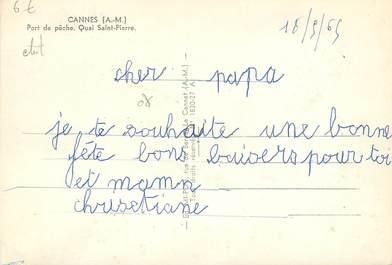 6€
CANNES (A.-M.)
Port de pêche. Quai Saint-Pierre.
18/5/65
cher papa
je te souhaite une bonne
fête bons baisers pour toi
et mamn
chrisetiane